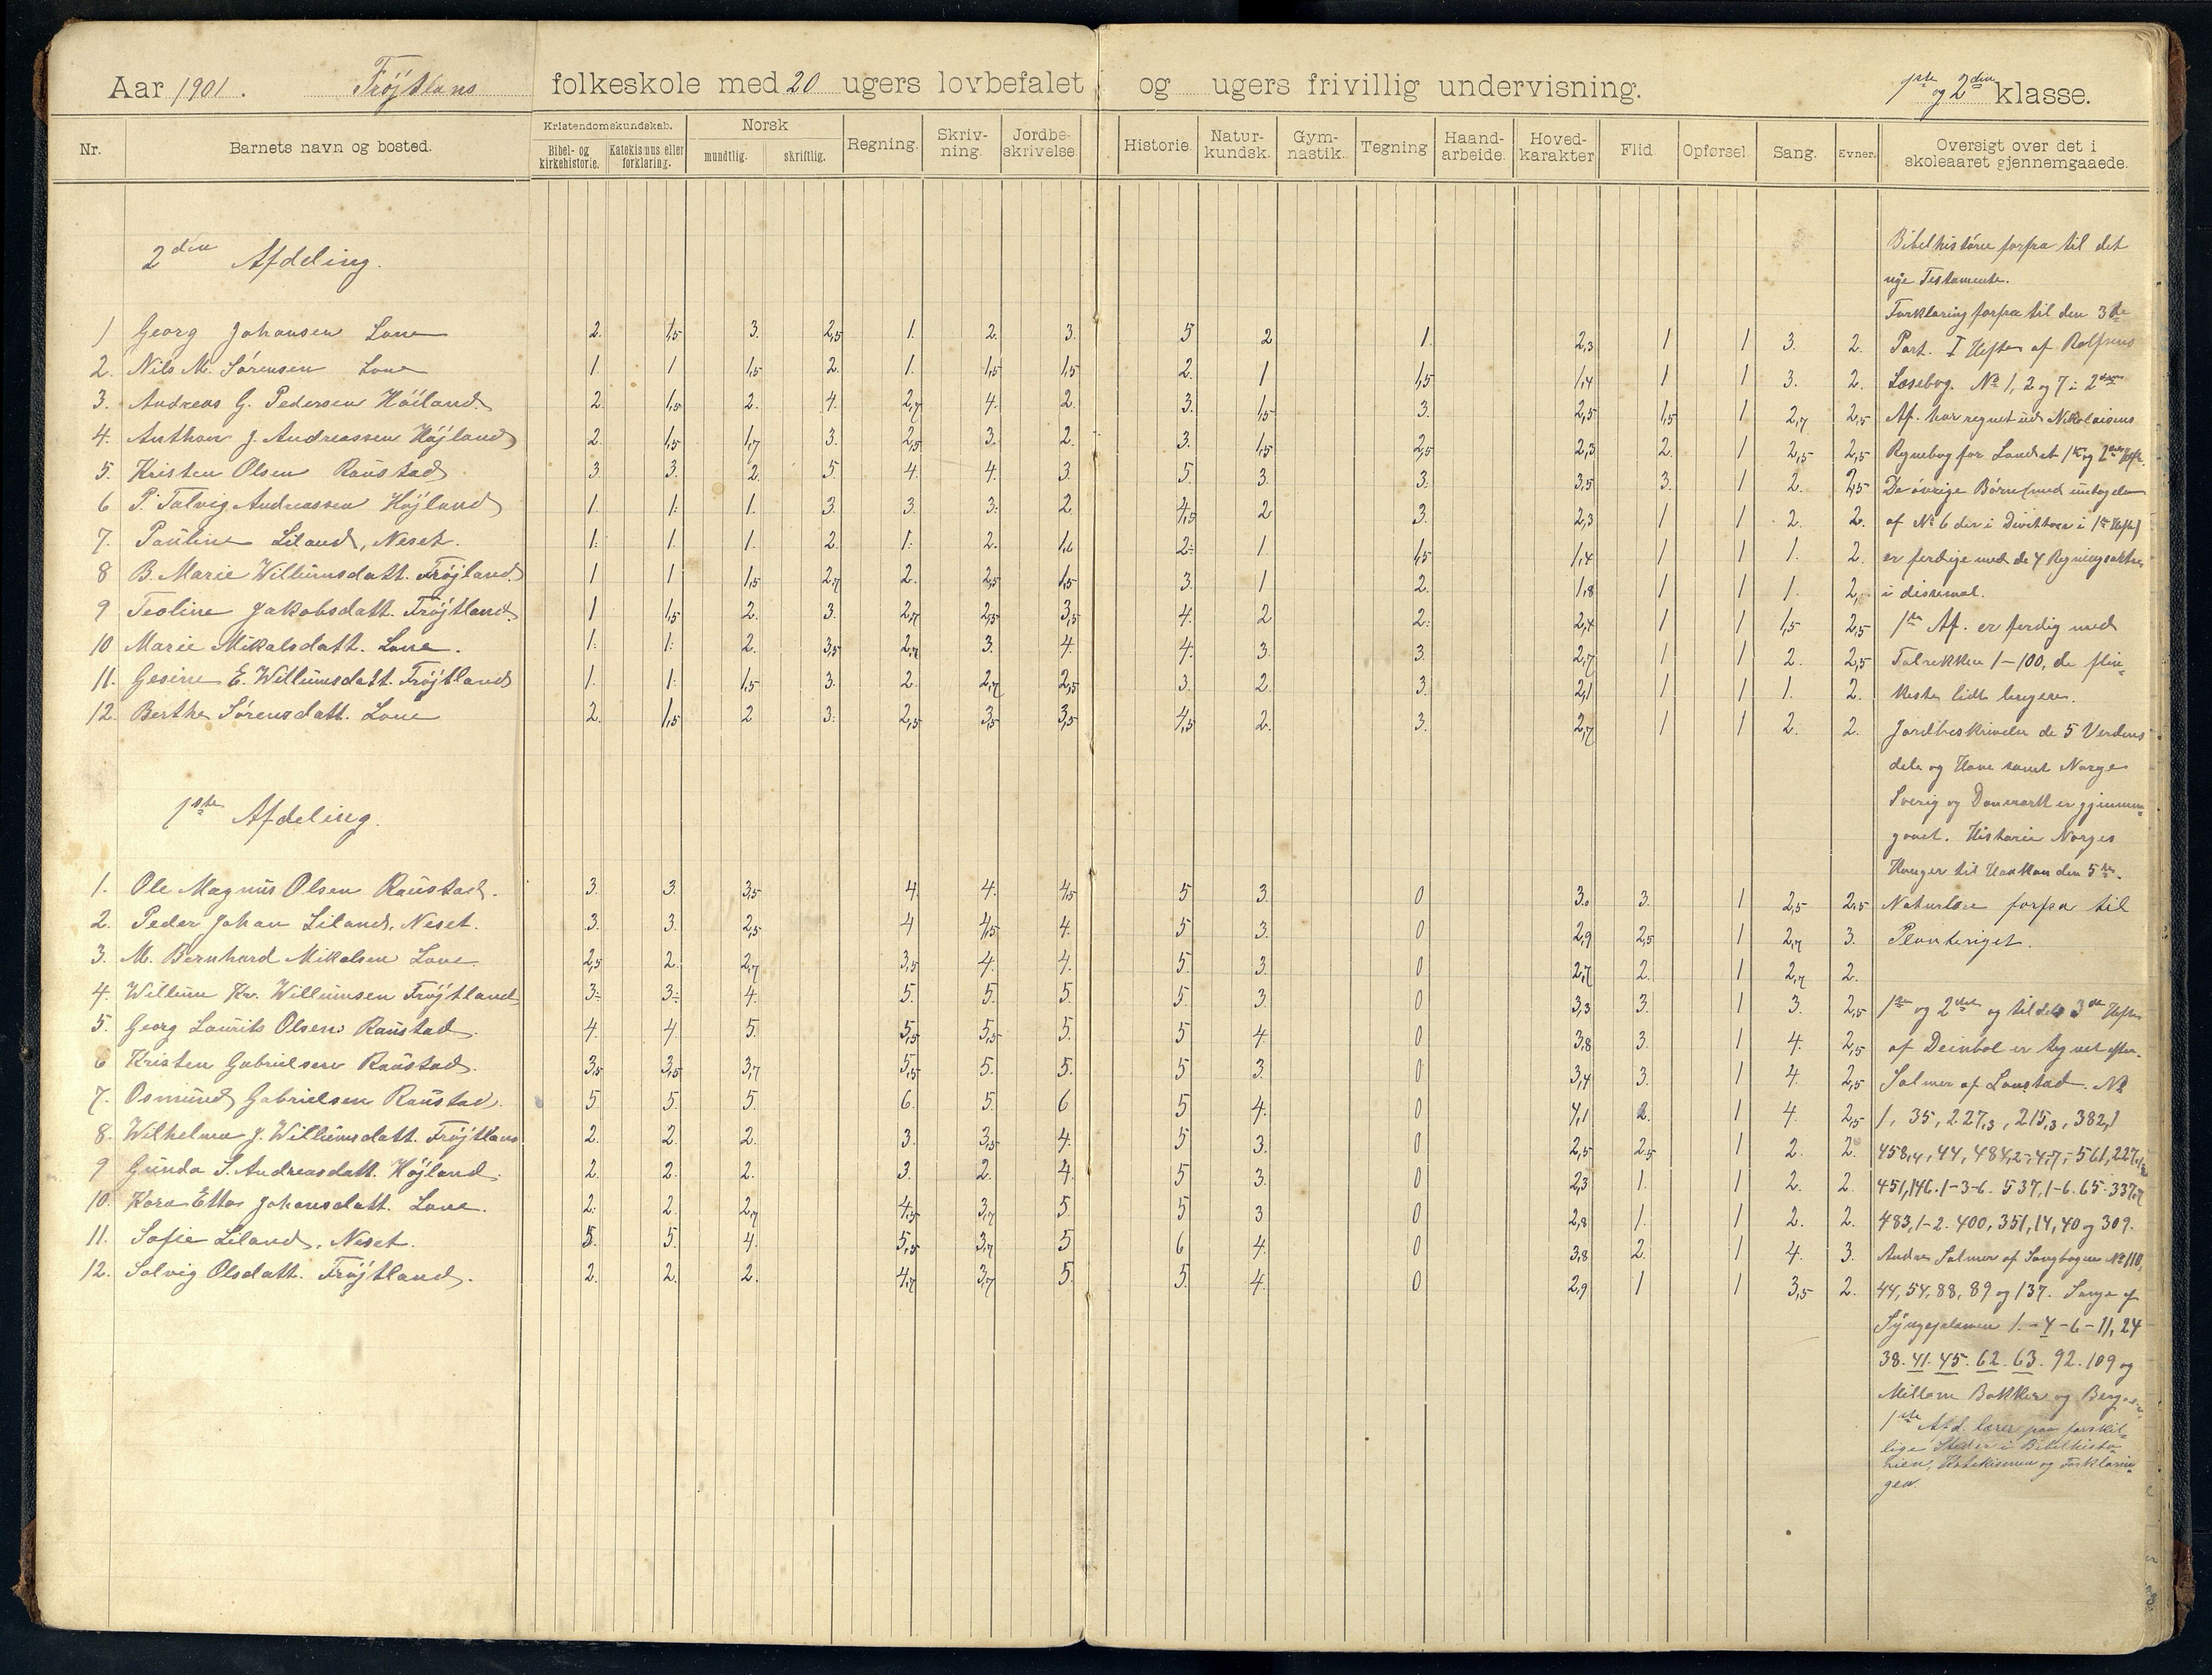 Aar 1901. Frøjtlans folkeskole med 20 ugers lovbefalet og ugers frivillig undervisning. 1ste og 2den klasse.
Nr. Barnets navn og bosted. Kristendomskundskab. Bibel- og kirkehistorie. Katekismus eller forklaring. Norsk mundtlig. skriftlig. Regning. Skriv-ning. Jordbe-skrivelse Historie. Natur-kundsk. Gym-nastik. Tegning Haand-arbeide. Hoved-karakter Flid Opførsel Sang. Evner. Oversigt over det i skoleaaret gjennemgaaede.
2den Afdeling.
1 Georg Johansen Lone 2. 1,5 3. 2,5 1. 2. 3. 5 2 1. 2,3 1 1 3. 2.
2. Nils M. Sørensen Lone 1. 1 1,5 2. 1. 1,5 1,5 2. 1 1,5 1,4 1 1 3. 2.
3. Andreas G. Pedersen Höiland 2. 1,5 2. 4. 2,7 4. 2. 3. 1,5 3. 2,5 1,5 1 2,7 2,5
4. Anthon J. Andreassen Højland 2. 1,5 1,7 3. 2,5 3. 2. 3. 1,5 2,5 2,3 2. 1 2,5 2,5
5. Kristen Olsen Raustad 3 3. 2. 5. 4. 4. 3. 5. 3. 3. 3,5 3. 1 2. 2,5
6 P. Talvig Andreassen Højland 1. 1. 1. 3. 3. 3. 2. 4,5 2 3. 2,3 1 1 2. 2.
7. Pauline Liland, Neset. 1. 1. 1. 2. 1. 2. 1,6 2. 1. 1,5 1,4 1 1 1. 2.
8 B. Marie Willumsdatt. Frøjland 1 1 1,5 2,7 2. 2,5 1,5 3. 1 2. 1,8 1 1 1. 2.
9 Teoline Jakobsdatt. Frøjtland. 1 1,5 2. 3. 2,7 2,5 3,5 4. 2 2. 2,4 1 1 1,5 2,5
10 Marie Mikalsdatt. Lone. 1. 1. 2. 3,5 2,7 3. 4. 4. 3. 3. 2,7 1 1 2. 2,5
11. Gesine E. Willumsdatt. Frøjtland 1. 1. 1,5 3. 2. 2,7 2,5 3. 2. 3. 2,1 1 1 1. 2.
12. Berthe Sørensdatt. Lone 2. 1,5 2 3. 2,5 3,5 3,5 4,5 2. 3. 2,7 1 1 2. 2.
1ste Afdeling.
1. Ole Magnus Olsen Raustad. 3. 3. 3,5 4 4. 4,5 5 3. 0 3.0 3. 1 2,5 2,5
2. Peder Johan Liland, Neset. 3. 3. 2,5 4 4,5 4. 5 3. 0 2,9 2,5 1 2,7 3.
3. M. Bernhard Mikalsen Lone. 2,5 2. 2,7 3,5 4. 4. 5. 3. 0 2,7 2. 1 2,7 2.
4. Willum Kr. Willumsen Frøjtland 3. 3. 4. 5. 5. 5. 5. 3. 0 3,3 3. 1 3. 2,5
5. Georg Laurits Olsen Raustad. 4. 4. 5. 5,5 5,5 5. 5 4. 0 3,8 3. 1 4. 2,5
6 Kristen Gabrielsen Raustad. 3,5 3,5 3,7 5,5 5. 5. 5 3. 0 3,4 3. 1 4. 2,5
7. Osmund Gabrielsen Raustad. 5 5. 5. 6. 5. 6 5 4. 0 4,1 2. 1 4. 2,5
8. Wilhelma J. Willumsdatt. Frøjtlans 2. 2. 2. 3. 3,5 4. 5 3. 0 2,5 2,5 1 2. 2.
9 Gunda S. Andreasdatt. Højland. 2. 2. 2. 3. 2. 4. 5 3. 0 2,3 1. 1 2. 2.
10. Kara Etta Johansdatt. Lone. 2. 2. 2,7 4,5 3,7 5. 5 3 0 2,8 1. 1 2. 2.
11. Sofie Liland, Neset. 5. 5. 4. 5,5 3,7 5 6 4. 0 3,8 2. 1 4. 3.
12. Solvig Olsdatt. Frøjtland. 2. 2. 2. 4,7 3,7 5. 5. 4. 0 2,9 1 1 3,5 2.
Bibelhistorie forfra til det
nye Testamente.
Forklaring forfra til den 3de
Part. I Hefte af Rolfsens
Læsebog. No 1, 2 og 7 i 2den
Af. har regnet ud Nikolaisens
Regnebog for Landet 1ste og 2det Hefte.
De øvrige Børn (med undtagelse
af No 6 der i Division i 1ste Hefte)
er ferdige med de 4 Regningsarter
i desimal.
1ste Af. er ferdig med
Talrekken 1-100, de flin-
keste lidt lengere.
Jordbeskrivelse de 5 Verdens
dele og Have samt Norge
Sverig og Danmark er gjennem-
gaaet. Historie Norges
Konger til Haakon den 5te.
Naturlære forfra til
Planteriget.
1ste og 2det og til det 3die Hefte
af Deinbol er tegnet efter.
Salmer af Lanstad. No
1, 35, 227,3, 215,3, 382,1
458,4, 44, 484,2-4-7, 561, 227,1
451,146.1-3-6. 537,1-6. 65. 337,7
483,1-2. 400, 351, 14, 40 og 309.
Andre Salmer af Sangbogen No 110,
44, 54, 88, 89 og 137. Sange af
Syngeskolen 1.-4-6-11, 24
38. 41. 45. 62. 63. 92. 109 og
Millom Bakkar og Berg
1ste Afd. lærer paa forskil-
lige Steder i Bibelhisto-
rien, Katekismen og Forklarin-
gen